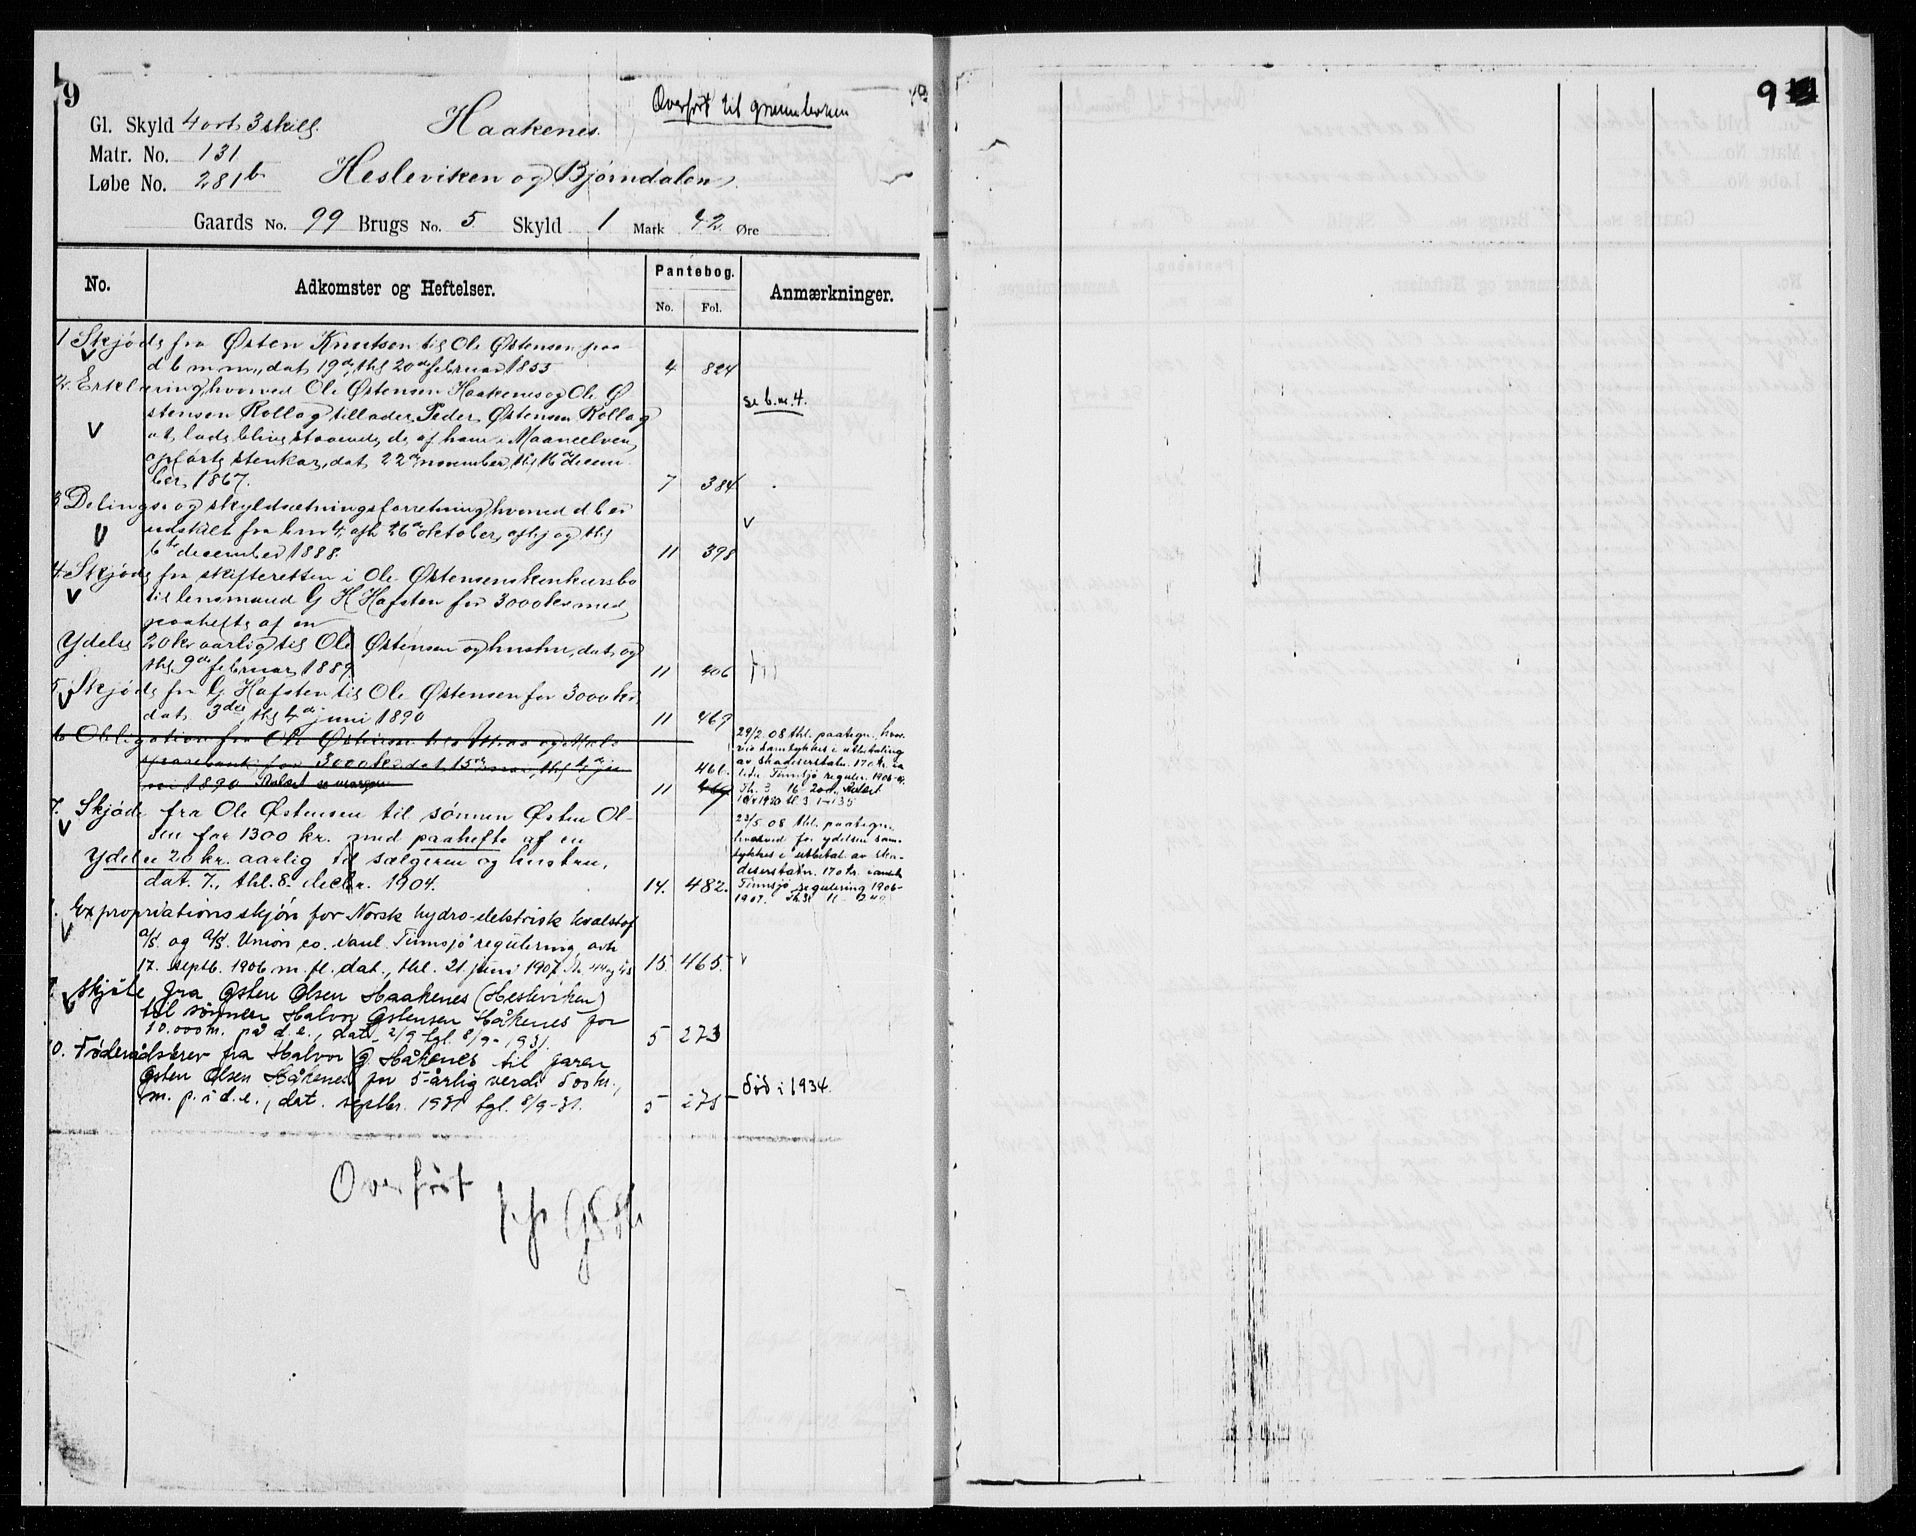 9
9
Gl. Skyld 4 ort 3 skill.
Haakenes.
Overført til grunnboken
Matr. No. 131
Løbe No. 281b
Hesleviken og Bjørndalen.
Gaards No. 99 Brugs No. 5 Skyld 1 Mark 42 Øre
No. Adkomster og Heftelser. Pantebog. No. Fol. Anmærkninger.
1 Skjøde fra Østen Knutsen til Ole Østensen paa
d b m m, dat 19de, thl 20de februar 1855 4 824
2. Erklæring, hvorved Ole Østensen Haakenes og Ole Ø
stensen Rollag tillader Peder Østensen Rollag
at lade blive staaende de af ham i Maaneelven
opførte stenkar, dat 22de november, thl 16de decem-
ber 1867. 7 384
se b. nr. 4.
3 Delings- og skyldsætningsforretning hvorved d b er
udskilt fra bno 4, afh 26de oktober, afhj og thl
6te december 1888. 11 398
v
4. Skjøde fra skifteretten i Ole Østensens konkursbo
til lensmand G H Hafsten for 3000 kr med
paahefte af en
Ydelse 20 kr aarlig til Ole Østensen og hustru, dat og
thl 9de februar 1889 11 406
5. Skjøde fra G Hafsten til Ole Østensen for 3000 kr,
dat 3die, thl 4de juni 1890 11 469
6 Obligation fra Ole Østensen til Tinns og Mæls
sparebank for 3000 kr dat 15de mai, thl 4de ju
ni 1890 Avlæst se margen 11 466.
29/2 08 thl. paategn. hvor-
ved samtykkes i utbetaling
av skadeserstatn. 170 kr. an
Tinnsjø reguler. 1906-
23/5 08 thl. paategn.
hvorved for ydelsen sam-
tykkes i utbetal. av ska-
deserstatn. 170 kr.
Tinnsjø regulering 1906-
1907.
7. Skjøde fra Ole Østensen til sønnen Østen Ol-
sen for 1300 kr. med paahefte af en
Ydelse 20 kr. aarlig til sælgeren og hustru,
dat. 7., thl. 8. decbr. 1904. 14. 482.
Expropriationsskjøn for Norsk hydro-elektrisk kvælstof
a/s og a/s. Union co. vanl. Tinnsjø regulering, avh
17. septb. 1906 m. fl. dat., thl. 21. juni 1907. 15 465. v
Skjøte fra Østen Olsen Haakenes (Hesleviken)
til sønnen Halvor Østensen Håkenes for
10.000 m. på d. e., dat. 2/9 tgl. 8/9-1931. 5 273
10. Føderådsbrev fra Halvor Ø. Håkenes til faren
Østen Olsen Håkenes for 5-årlig verdi 500 kr.,
m. p. i d. e., dat. septbr. 1931 tgl. 8/9-31. 5 275
Død i 1934.
Overført